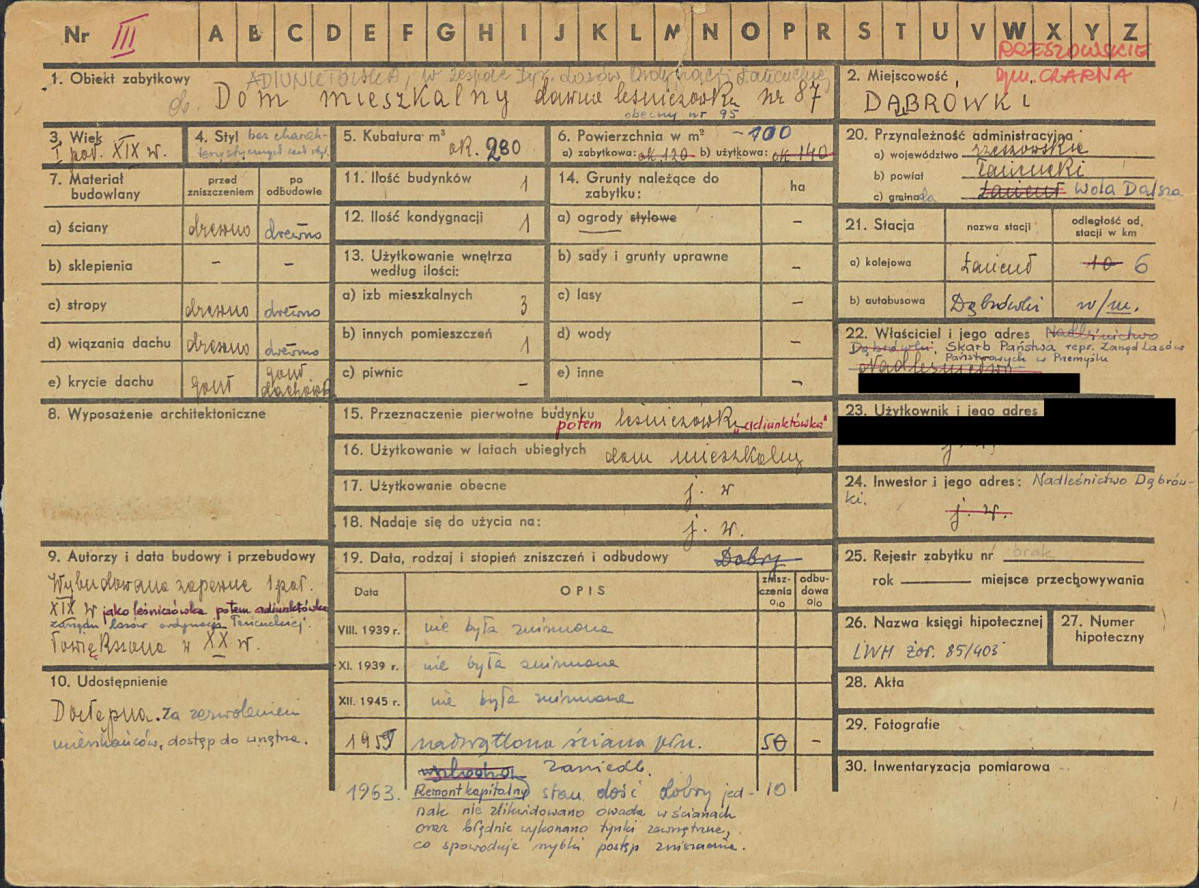 Nr III A B C D E F G H I J K L M N O P R S T U V W X Y Z
RZESZOWSKIE
gm. CZARNA
1. Obiekt zabytkowy ADIUNKTÓWKA, w zespole Ordynacji Łańcuckiej
Dom mieszkalny dawna leśniczówka nr 87
obecny nr 95
2. Miejscowość
DĄBRÓWKI
3. Wiek
I poł. XIX w.
4. Styl bez charak-
terystycznych cech styl.
5. Kubatura m³
ok. 280
6. Powierzchnia w m² ~100
a) zabytkowa: ok. 120 b) użytkowa: ok. 140
7. Materiał budowlany
przed zniszczeniem
po odbudowie
a) ściany drewno drewno
b) sklepienia – –
c) stropy drewno drewno
d) wiązania dachu drewno drewno
e) krycie dachu gont gont dachówk
8. Wyposażenie architektoniczne
9. Autorzy i data budowy i przebudowy
Wybudowana zapewne 1 poł.
XIX w jako leśniczówka potem adiunktówka
zarządu lasów ordynacji Łańcuckiej.
Powiększona w XX w.
10. Udostępnienie
Dostępna. Za zezwoleniem
mieszkańców, dostęp do wnętrza.
11. Ilość budynków 1
12. Ilość kondygnacji 1
13. Użytkowanie wnętrza
według ilości:
a) izb mieszkalnych 3
b) innych pomieszczeń 1
c) piwnic –
14. Grunty należące do
zabytku:
ha
a) ogrody stylowe –
b) sady i grunty uprawne –
c) lasy –
d) wody –
e) inne –
15. Przeznaczenie pierwotne budynku
potem leśniczówka "adiunktówka"
16. Użytkowanie w latach ubiegłych dom mieszkalny
17. Użytkowanie obecne j. w
18. Nadaje się do użycia na: j. w.
19. Data, rodzaj i stopień zniszczeń i odbudowy Dobry
Data
OPIS
zniszczenia %
odbudowa %
VIII. 1939 r. nie była zniszczona
XI. 1939 r. nie była zniszczona
XII. 1945 r. nie była zniszczona
1959 nadwątlona ściana płn. 50 –
zaniedb.
1963. Remont kapitalny stan dość dobry jed- 10
nak nie zlikwidowano owada w ścianach
oraz błędnie wykonano tynki zewnętrzne,
co spowoduje szybki postęp zniszczenia.
20. Przynależność administracyjna
a) województwo rzeszowskie
b) powiat Łańcucki
c) gmina Łańcut Wola Dalsza
21. Stacja
nazwa stacji
odległość od stacji w km
a) kolejowa Łańcut 10 6
b) autobusowa Dąbrówki w/m.
22. Właściciel i jego adres Nadleśnictwo
Dąbrówki. Skarb Państwa repr. Zarząd Lasów
Państwowych w Przemyślu
Nadleśnictwo
23. Użytkownik i jego adres
j. w.
24. Inwestor i jego adres: Nadleśnictwo Dąbrów-
ki.
j. w.
25. Rejestr zabytku nr brak
rok miejsce przechowywania
26. Nazwa księgi hipotecznej
LWH żoł. 85/403
27. Numer
hipoteczny
28. Akta
29. Fotografie
30. Inwentaryzacja pomiarowa